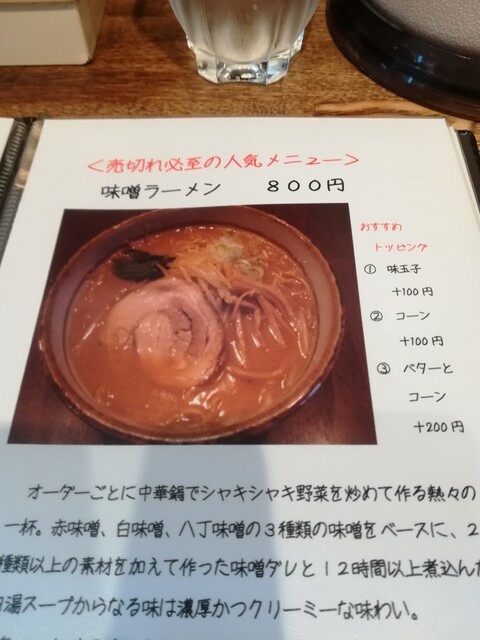 ＜売切れ必至の人気メニュー＞
味噌ラーメン　８００円
おすすめ
トッピング
① 味玉子
+100円
② コーン
+100円
③ バターと
コーン
+200円
オーダーごとに中華鍋でシャキシャキ野菜を炒めて作る熱々の
一杯。赤味噌、白味噌、八丁味噌の３種類の味噌をベースに、２
種類以上の素材を加えて作った味噌ダレと１２時間以上煮込んだ
白湯スープからなる味は濃厚かつクリーミーな味わい。